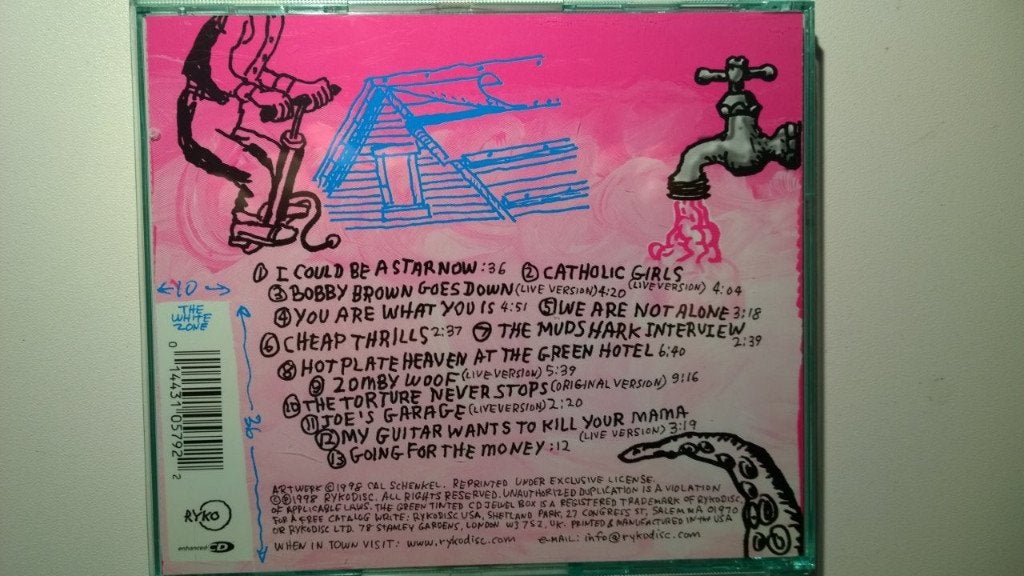 ① I COULD BE A STAR NOW :36 ② CATHOLIC GIRLS
(LIVE VERSION) 4:04
③ BOBBY BROWN GOES DOWN (LIVE VERSION) 4:20
④ YOU ARE WHAT YOU IS 4:51 ⑤ WE ARE NOT ALONE 3:18
⑥ CHEAP THRILLS 2:37 ⑦ THE MUDSHARK INTERVIEW
2:39
⑧ HOT PLATE HEAVEN AT THE GREEN HOTEL 6:40
⑨ ZOMBY WOOF (LIVE VERSION) 5:39
⑩ THE TORTURE NEVER STOPS (ORIGINAL VERSION) 9:16
⑪ JOE'S GARAGE (LIVE VERSION) 2:20
⑫ MY GUITAR WANTS TO KILL YOUR MAMA
(LIVE VERSION) 3:19
⑬ GOING FOR THE MONEY :12
THE
WHITE
ZONE
0 14431 05792 2
36
RYKO
enhanced CD
ARTWERK © 1998 CAL SCHENKEL. REPRINTED UNDER EXCLUSIVE LICENSE.
℗© 1998 RYKODISC. ALL RIGHTS RESERVED. UNAUTHORIZED DUPLICATION IS A VIOLATION
OF APPLICABLE LAWS. THE GREEN TINTED CD JEWEL BOX IS A REGISTERED TRADEMARK OF RYKODISC.
FOR A FREE CATALOG WRITE: RYKODISC USA, SHETLAND PARK, 27 CONGRESS ST, SALEM MA 01970
OR RYKODISC LTD. 78 STANLEY GARDENS, LONDON W3 7SZ, UK. PRINTED & MANUFACTURED IN THE USA
WHEN IN TOWN VISIT: www.rykodisc.com e-MAIL: info@rykodisc.com